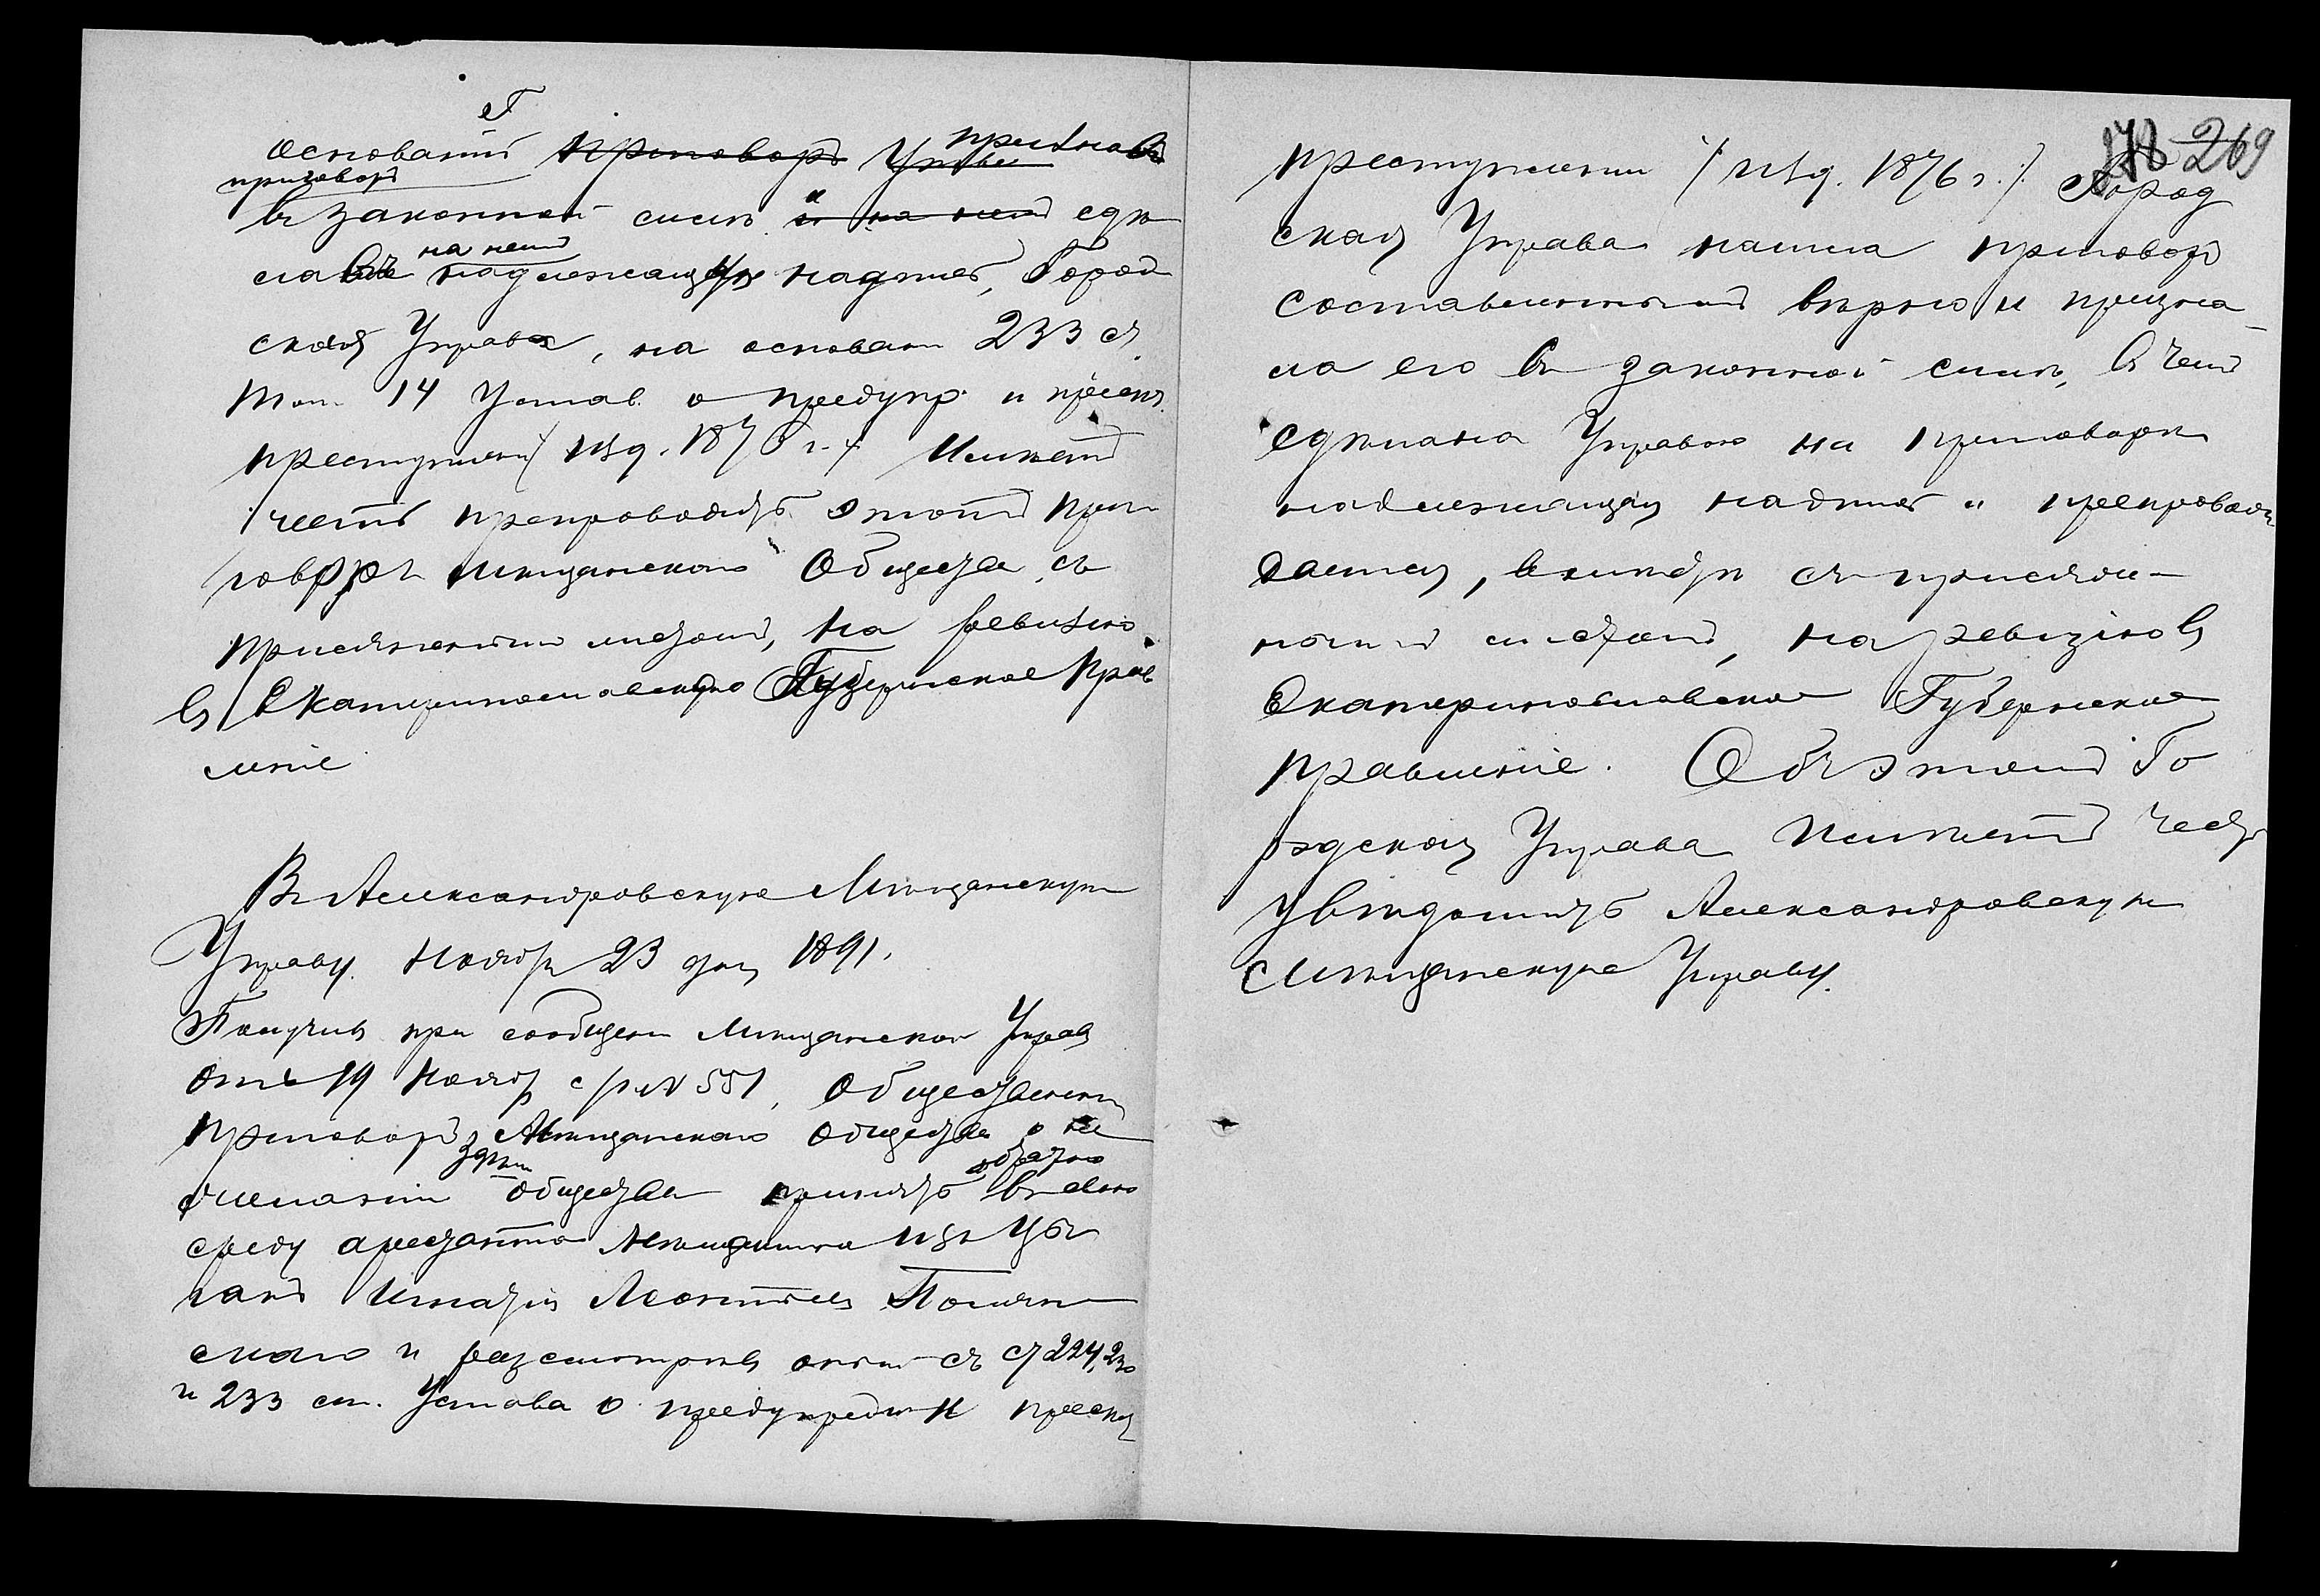 основаніи признавъ
приговоръ
въ законной силѣ и сдѣ
лавъ на немъ надлежащую надпись, Город
ская Управа, на основаніи 233 ст.
том. 14 Устав. о предупр. и пресѣч.
преступленій (изд. 1876 г.) Имѣетъ
честь препроводить этотъ при
говоръ Мѣщанскаго Общества, съ
присяжнымъ листомъ, на ревизію
въ Екатеринославское Губернское Прав
леніе
Въ Александровскую Мѣщанскую
Управу. Ноября 23 дня 1891.
Получивъ при сообщеніи Мѣщанской Управы
отъ 19 Ноября с/г за № 551, Общественный
приговоръ Мѣщанскаго общества о не
желаніи здѣшн. общества принять обратно въ свою
среду арестанта Мѣщанина изъ Цы
ганъ Игнатія Леонтьева Полян
скаго и разсмотрѣвъ оный съ ст 224, 230
и 233 ст. Устава о предупрежд. и пресѣч.
269
преступленій (изд. 1876 г.) Город
ская Управа нашла приговоръ
составленнымъ вѣрно и призна
ла его въ законной силѣ, въ чемъ
сдѣлана Управою на приговорѣ
надлежащая надпись и препровож
дается, вмѣстѣ съ присяж-
нымъ листомъ, на ревизію въ
Екатеринославское Губернское
Правленіе. Объ этомъ Го
родская Управа Имѣетъ честь
увѣдомить Александровскую
Мѣщанскую Управу.